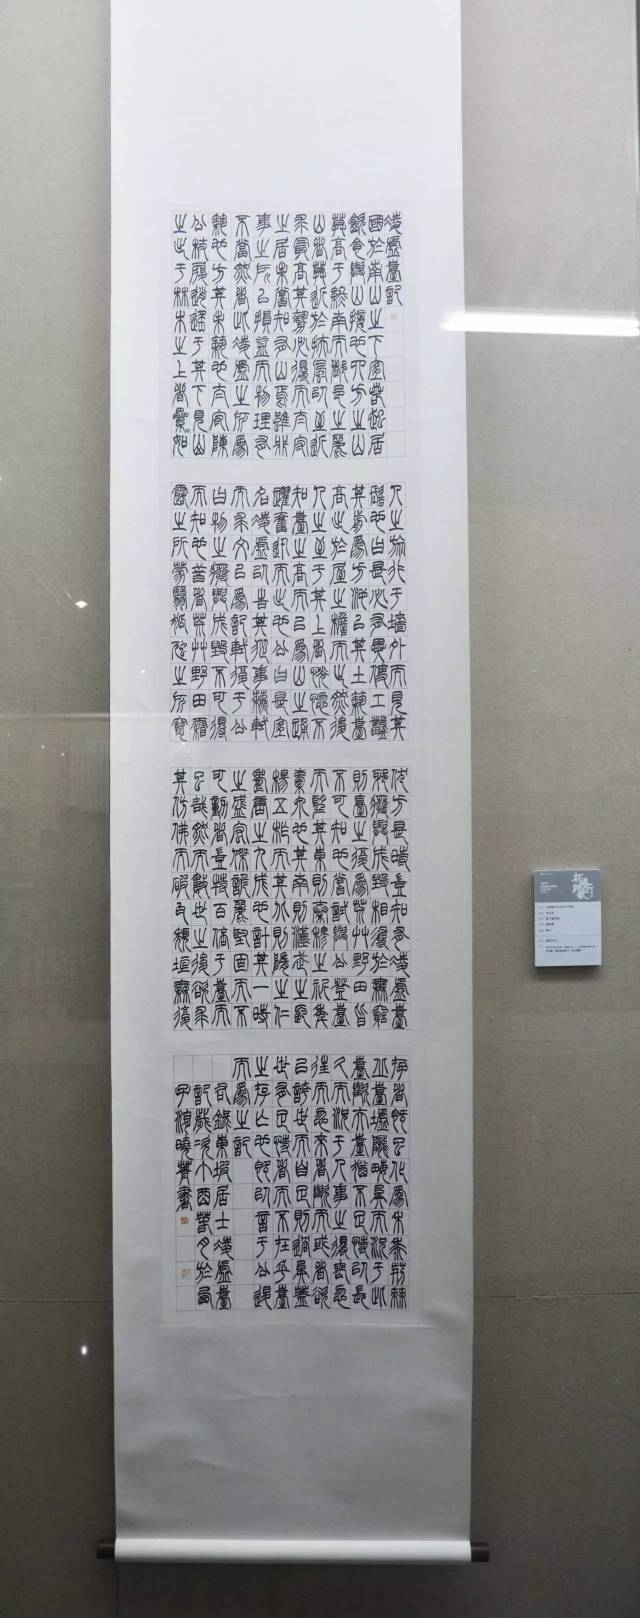 凌虛臺記
國於南山之下宜若起居
飲食與山接也四方之山
莫高于終南而都邑之麗
山者莫近於扶風以至近
求最高其勢必得而太守
之居未嘗知有山焉雖非
事之所以損益而物理有
不當然者此凌虛之所爲
築也方其未築也太守陳
公杖屨逍遙于其下見山
之出于林木之上者纍如
人之旅行于墻外而見其
髻也曰是必有異使工鑿
其前爲方池以其土築臺
高出於屋之檐而止然後
人之至于其上者怳然不
知臺之高而以爲山之踊
躍奮迅而出也公曰是宜
名凌虛以告其從事蘇軾
而求文以爲記軾復于公
曰物之廢興成毀不可得
而知也昔者荒艸野田霜
露之所蒙翳狐虺之所竄
伏方是時豈知有凌虛臺
耶廢興成毀相尋於無窮
則臺之復爲荒艸野田皆
不可知也嘗試與公登臺
而望其東則秦穆之祈年
橐泉也其南則漢武之長
楊五柞而其北則隋之仁
壽唐之九成也計其一時
之盛宏傑詭麗堅固而不
可動者豈特百倍于臺而
已哉然而數世之後欲求
其彷彿而破瓦頹垣無復
存者既已化爲禾黍荊棘
丘墟隴畝矣而況于此
臺歟夫臺猶不足恃以長
久而況于人事之得喪忽
往而忽來者歟而或者欲
以誇世而自足則過矣蓋
世有足恃者而不在乎臺
之存亡也既以言于公退
而爲之記
右錄東坡居士凌虛臺
記歲次丁酉月於
子曉菁書